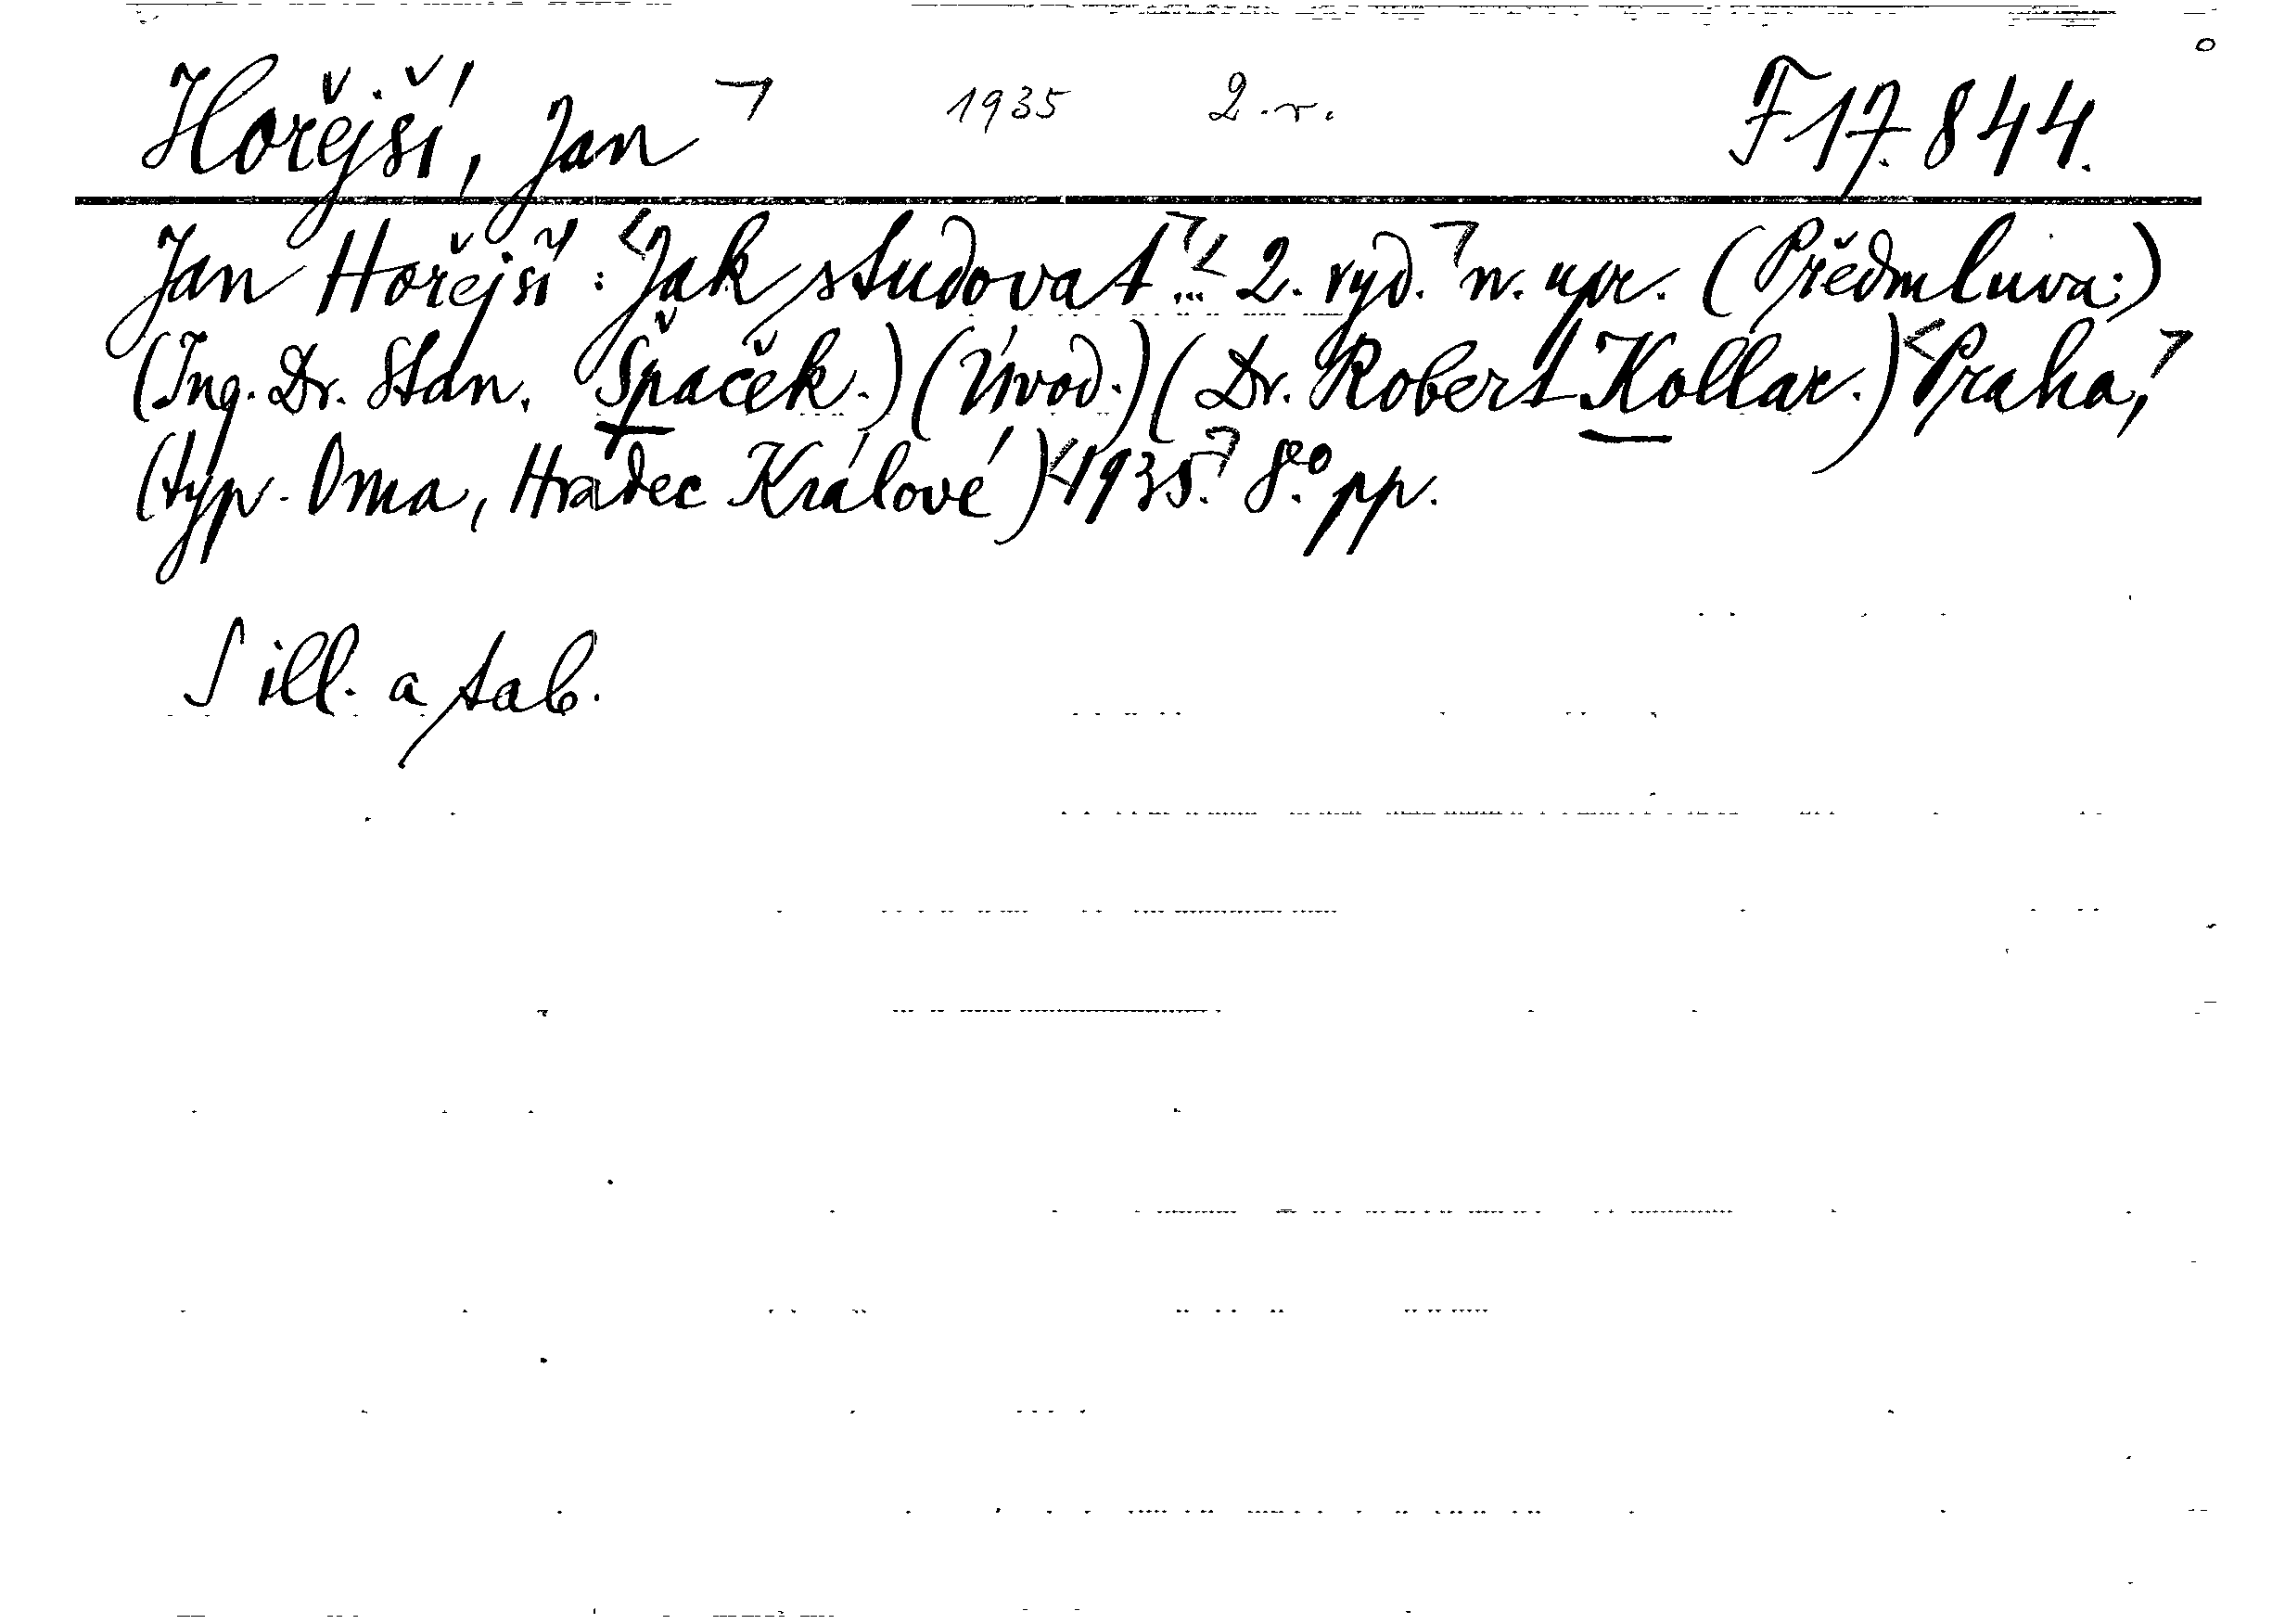 Hořejší, Jan 1935 2.v. F 17.844.
Jan Hořejší: Jak studovat... 2. vyd. n. upr. (Předmluva:)
(Ing. Dr. Stan. Špaček.) (Úvod.) (Dr. Robert Kollar.) Praha,
(typ. Oma, Hradec Králové) 1935. 8.° pp.
S ill. a tab.